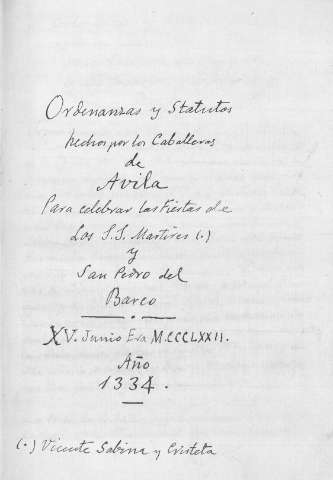 Ordenanzas y Statutos
hechos por los Caballeros
de
Avila
Para celebrar las Fiestas de
Los S.S. Martires (.)
y
San Pedro del
Barco
XV. Junio Era M.CCCLXXII.
Año
1334.
(.) Vicente Sabina y Cristeta